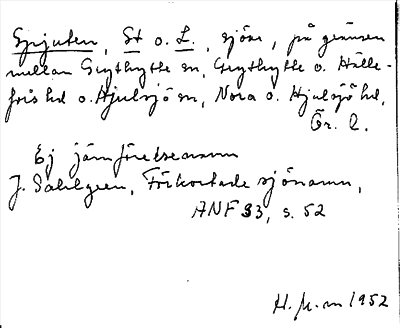 Spjuten, St o. L., sjöar, på gränsen
mellan Grythytte sn, Grythytte o. Hälle-
fors hd o. Hjulsjö sn, Nora o. Hjulsjö hd,
Ör. l.
Ej jämförelsenamn
J. Sahlgren, Förkortade sjönamn,
ANF 33, s. 52
H. 1952